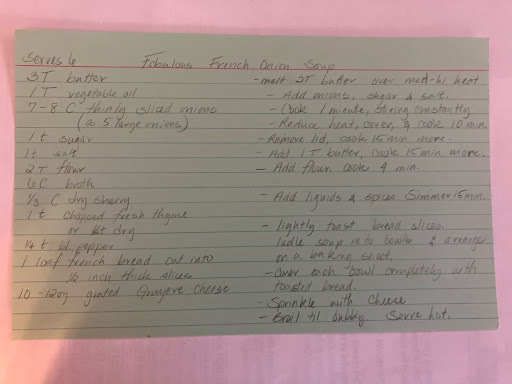 Serves 6
Fabulous French Onion Soup
3 T butter
1 T vegetable oil
7-8 C thinly sliced onions
(a 5 large onions)
1 t sugar
1 t salt
2 T flour
6 C broth
1/3 C dry sherry
1 t chopped fresh thyme
or dry
1/4 t bl. pepper
1 loaf french bread cut into
1/2 inch thick slices
10-12oz grated Gruyere Cheese
- melt 2T butter over med-hi heat
- Add onions, sugar & salt.
- Cook 1 minute, stiring constantly
- Reduce heat, cover, & cook 10 min.
- Remove lid, cook 15 min more.
- Add 1 T butter, cook 15 min more.
- Add flour, cook 4 min.
- Add liquids & spices Simmer 15 min.
- lightly toast bread slices.
ladle soup into bowls & arrange
on a baking sheet.
- Cover each bowl completely with
toasted bread.
- Sprinkle with cheese
- Broil til bubbly. Serve hot.